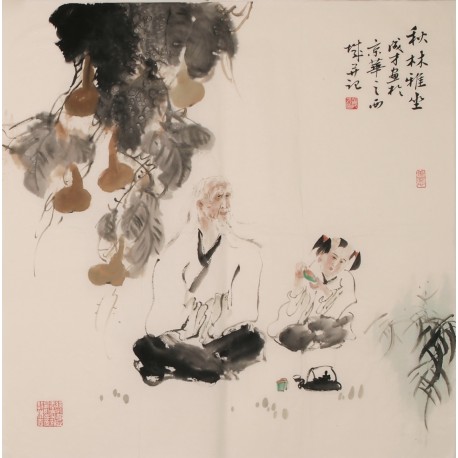 秋林雅坐
成才畫於
京華之西
城并记